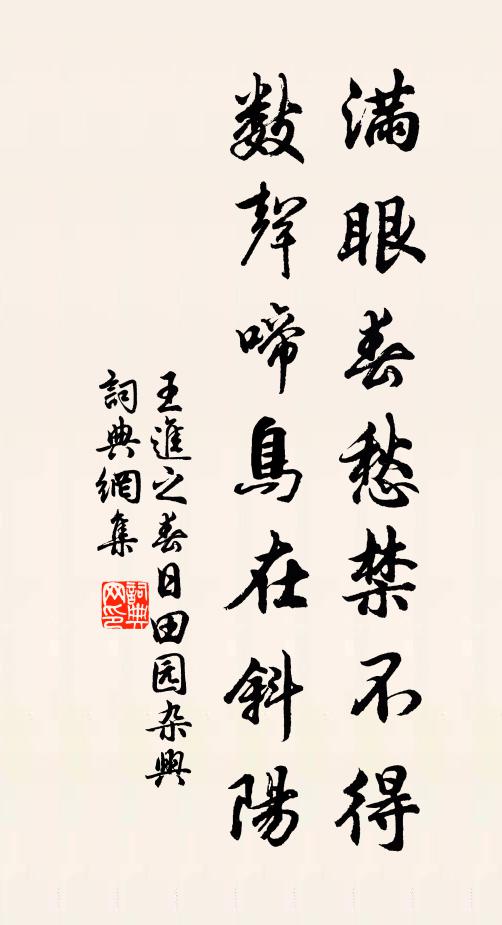 满眼春愁禁不得
数聲啼鳥在斜陽
王進之春日田园杂興
詞典網集
詞典网印